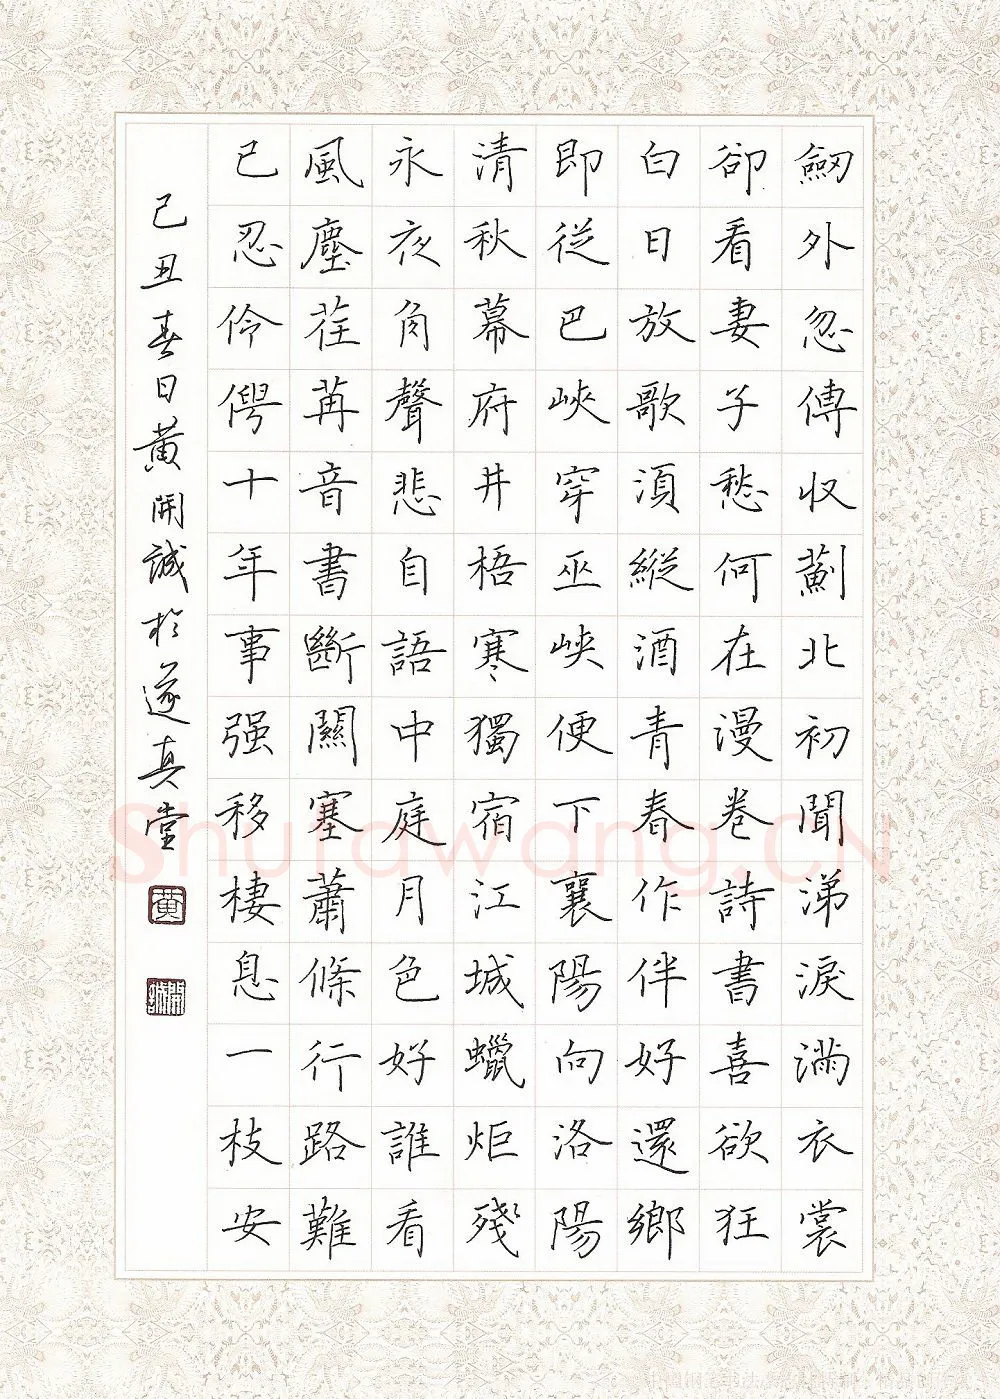 劒外忽傳収薊北初聞涕淚滿衣裳
卻看妻子愁何在漫卷詩書喜欲狂
白日放歌湏縱酒青春作伴好還鄉
即從巴峽穿巫峽便下襄陽向洛陽
清秋幕府井梧寒獨宿江城蠟炬殘
永夜角聲悲自語中庭月色好誰看
風塵荏苒音書斷關塞蕭條行路難
已忍伶俜十年事强移棲息一枝安
己丑春日黄開誠於遂真堂
黄
開誠
Shufawang.CN